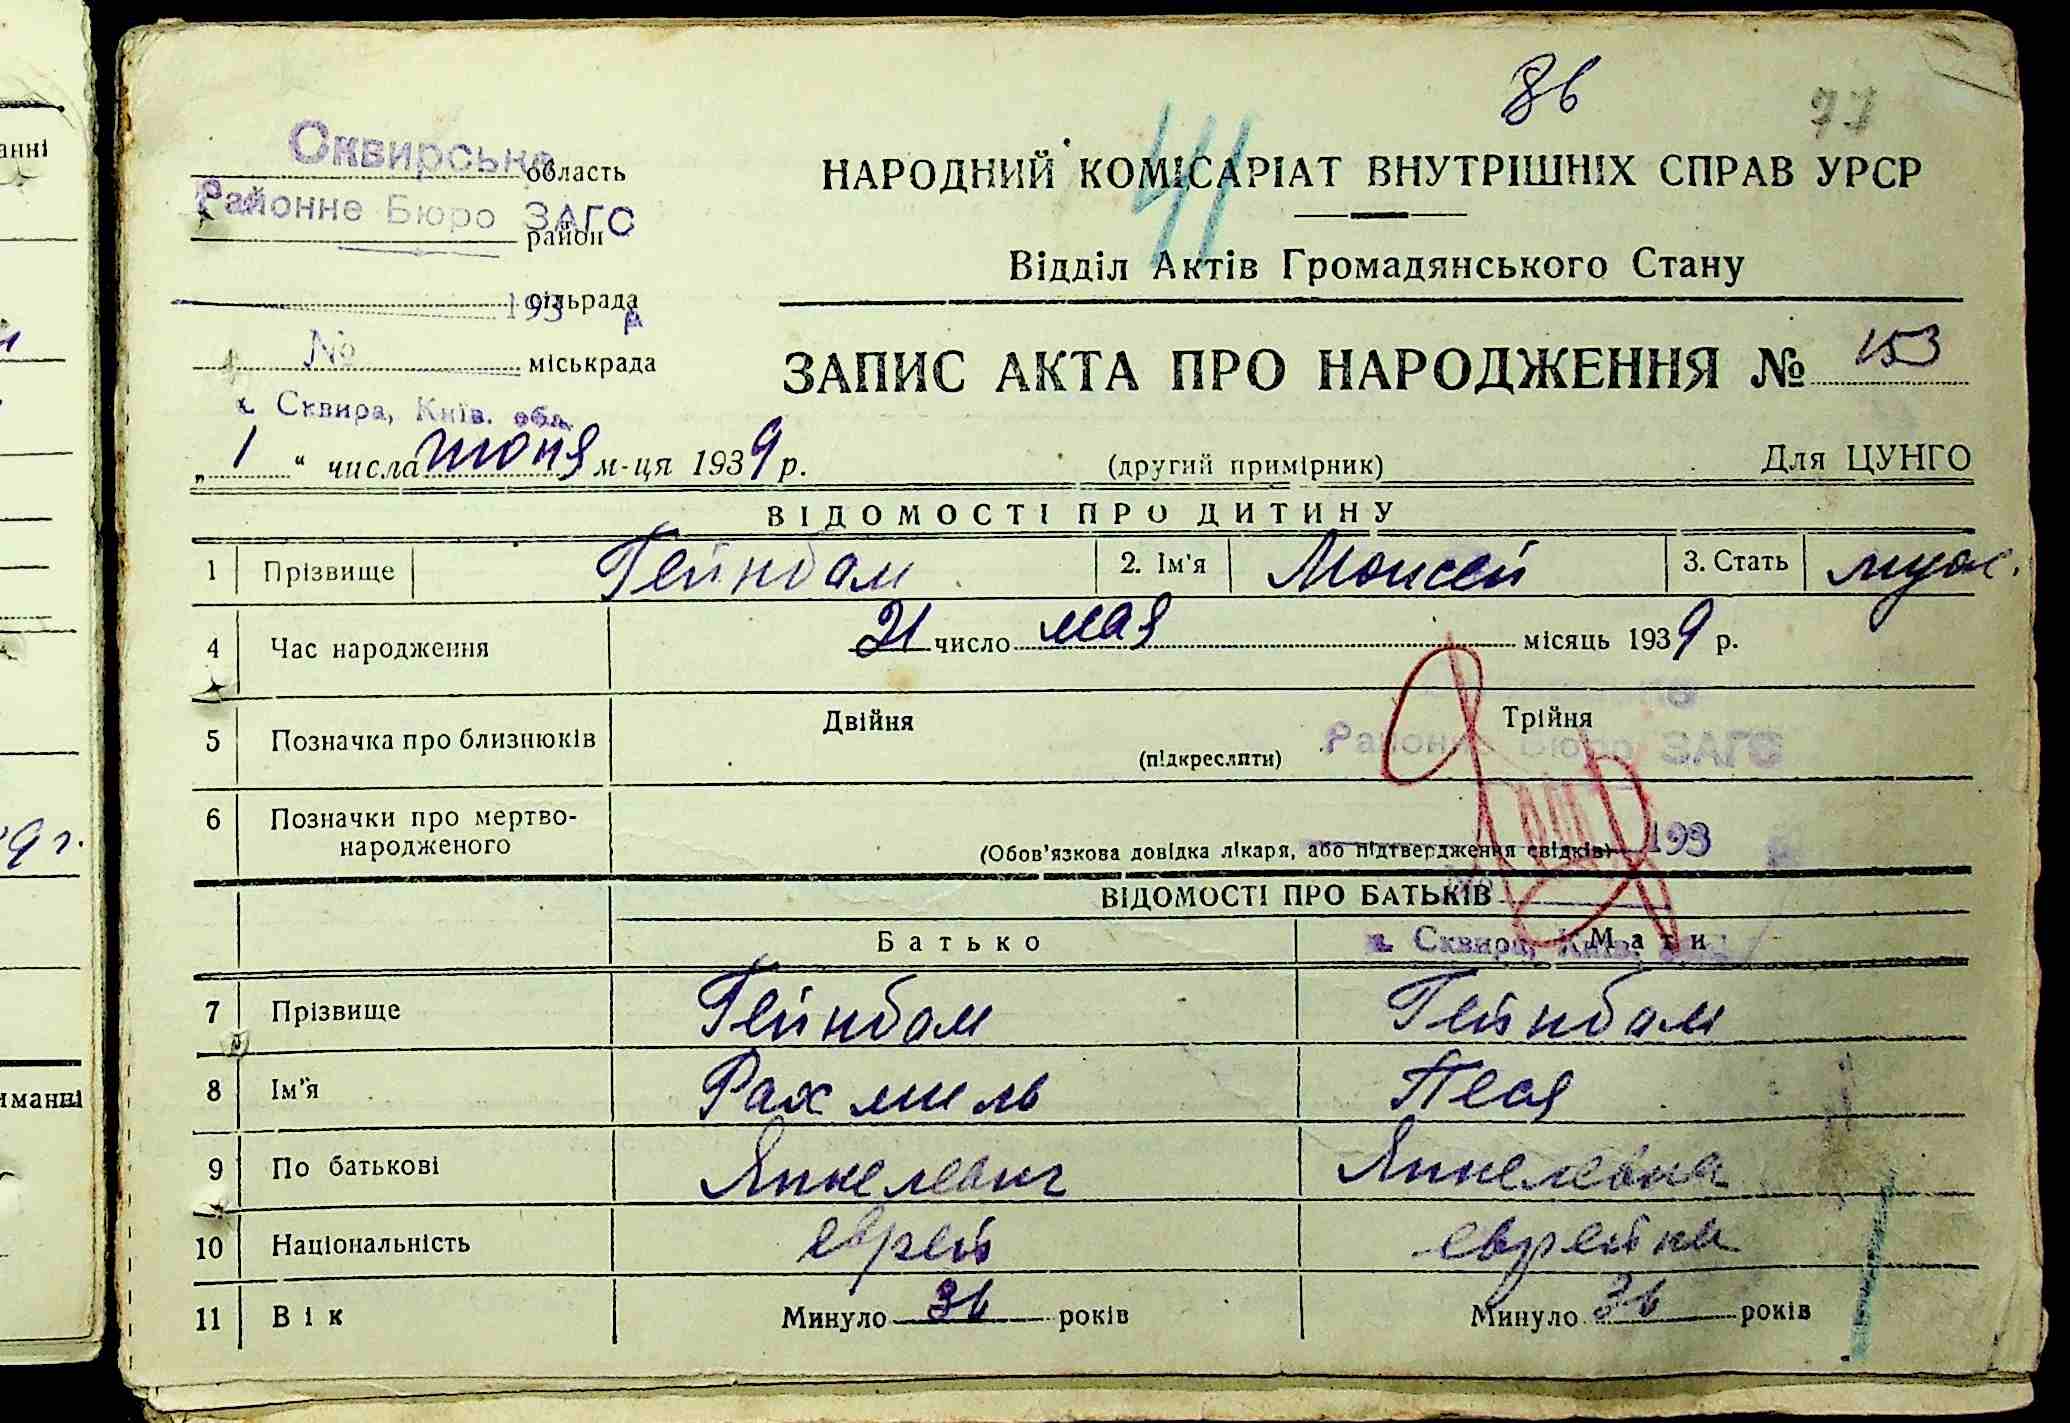 86
77
41
Сквирське
область
Районне Бюро ЗАГС
район
сільрада
193 р
№ міськрада
м. Сквира, Київ. обл.
НАРОДНИЙ КОМІСАРІАТ ВНУТРІШНІХ СПРАВ УРСР
Відділ Актів Громадянського Стану
ЗАПИС АКТА ПРО НАРОДЖЕННЯ № 153
„1“ числа июня м-ця 1939 р.
(другий примірник)
Для ЦУНГО
ВІДОМОСТІ ПРО ДИТИНУ
1 Прізвище Гейнбам 2. Ім'я Моисей 3. Стать муж.
4 Час народження 21 число мая місяць 1939 р.
5 Позначка про близнюків Двійня Трійня
(підкреслити)
Районне Бюро ЗАГС
6 Позначки про мертво-
народженого
(Обов'язкова довідка лікаря, або підтвердження свідків)
193
ВІДОМОСТІ ПРО БАТЬКІВ
Батько Мати
м. Сквира, Київ.
7 Прізвище Гейнбам Гейнбам
8 Ім'я Рахмиль Песя
9 По батькові Янкелевич Янкелевна
10 Національність еврей еврейка
11 Вік Минуло 36 років Минуло 36 років
анні
9 г.
иманні